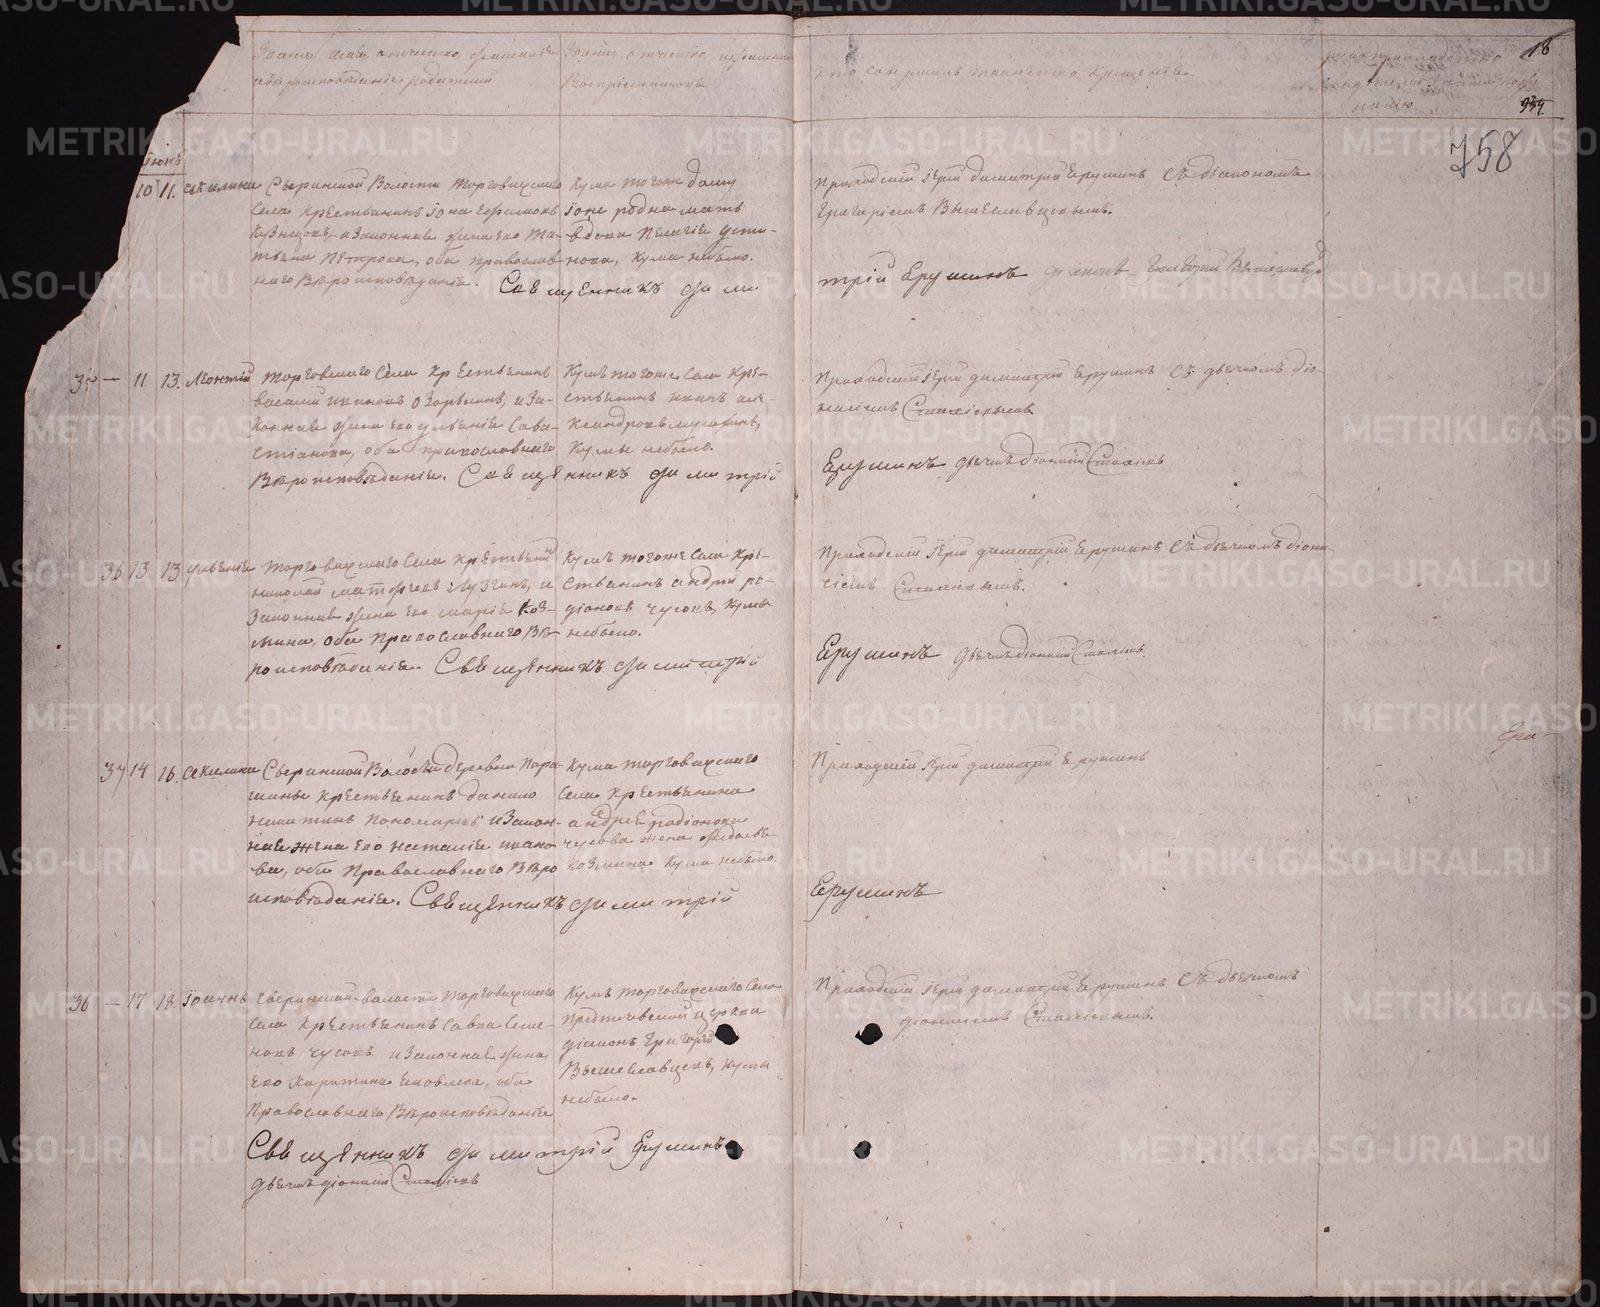 Званіе имя, отчество фамилія
и вѣроисповѣданіе родителей
Званіе, отчество, и фамилія
Воспріемниковъ
Кто совершалъ таинство крещенія.
18
939.
758
Іюнь
10 11. Акилина Сверинской Волости Торговижскаго
села Крестьянинъ Іона Ефимовъ
Кузнецовъ, и Законная жена его Та-
тьяна Петрова, оба православ-
наго Вѣроисповѣданія. Священникъ Дими
Кума тогоже дому
Іоне родная мать
вдова Пелагія Усти-
нова, Кума небыло.
Приходскій Іерей Димитрій Ерушинъ Съ діакономъ
Григоріемъ Вышеславцовымъ.
трій Ерушинъ діаконъ Григорій Вышеславцовъ
35 — 11 13. Леонтій Торговскаго Села Крестьянинъ
Василій Ивановъ Озорнинъ, и За-
конная жена его Ульянія Сава-
стіанова, оба православнаго
Вѣроисповѣданія. Священникъ Димитрій
Кумъ тогоже Села Кре-
стьянинъ
Кумы небыло.
Приходскій Іерей Димитрій Ерушинъ Съ дьячкомъ Діо-
нисіемъ
Ерушинъ дьячекъ Діонисій
36 13 13 Ульянія Торговижскаго Села Крестьянинъ
Николай Матфеевъ Лузгинъ, и
Законная жена его Марія Коз-
мина, оба Православнаго Вѣ-
роисповѣданія. Священникъ Димитрій
Кумъ тогоже Села Кре-
стьянинъ Андрей Ро-
діоновъ Чусовъ, Кумы
небыло.
Приходскій Іерей Димитрій Ерушинъ Съ дьячкомъ Діони-
сіемъ
Ерушинъ Дьячекъ Діонисій
37 14 16. Акилина Сверинской Волости деревни Пара-
шины Крестьянинъ Данило
Никитинъ Пономаревъ и Закон-
ная жена его Наталія Ивано-
ва, оба Православнаго Вѣро
исповѣданія. Священникъ Димитрій
Кума Торговижскаго
Села Крестьянина
Андрея Родіонова
Чусова жена Федосья
Козмина Кума небыло.
Приходскій Іерей Димитрій Ерушинъ
Ерушинъ
38 — 17 18. Іоаннъ Сверинской волости Торговижскаго
Села Крестьянинъ Савва Семе-
новъ Чусовъ и Законная жена
его Харитина Яковлева, оба
Православнаго Вѣроисповѣданія
Священникъ Димитрій Ерушинъ
дьячекъ Діонисій
Кумъ Торговижскаго Села
Предтечевской церкви
діаконъ Григорій
Вышеславцевъ, Кумы
небыло.
Приходскій Іерей Димитрій Ерушинъ Съ дьячкомъ
Діонисіемъ
METRIKI.GASO-URAL.RU